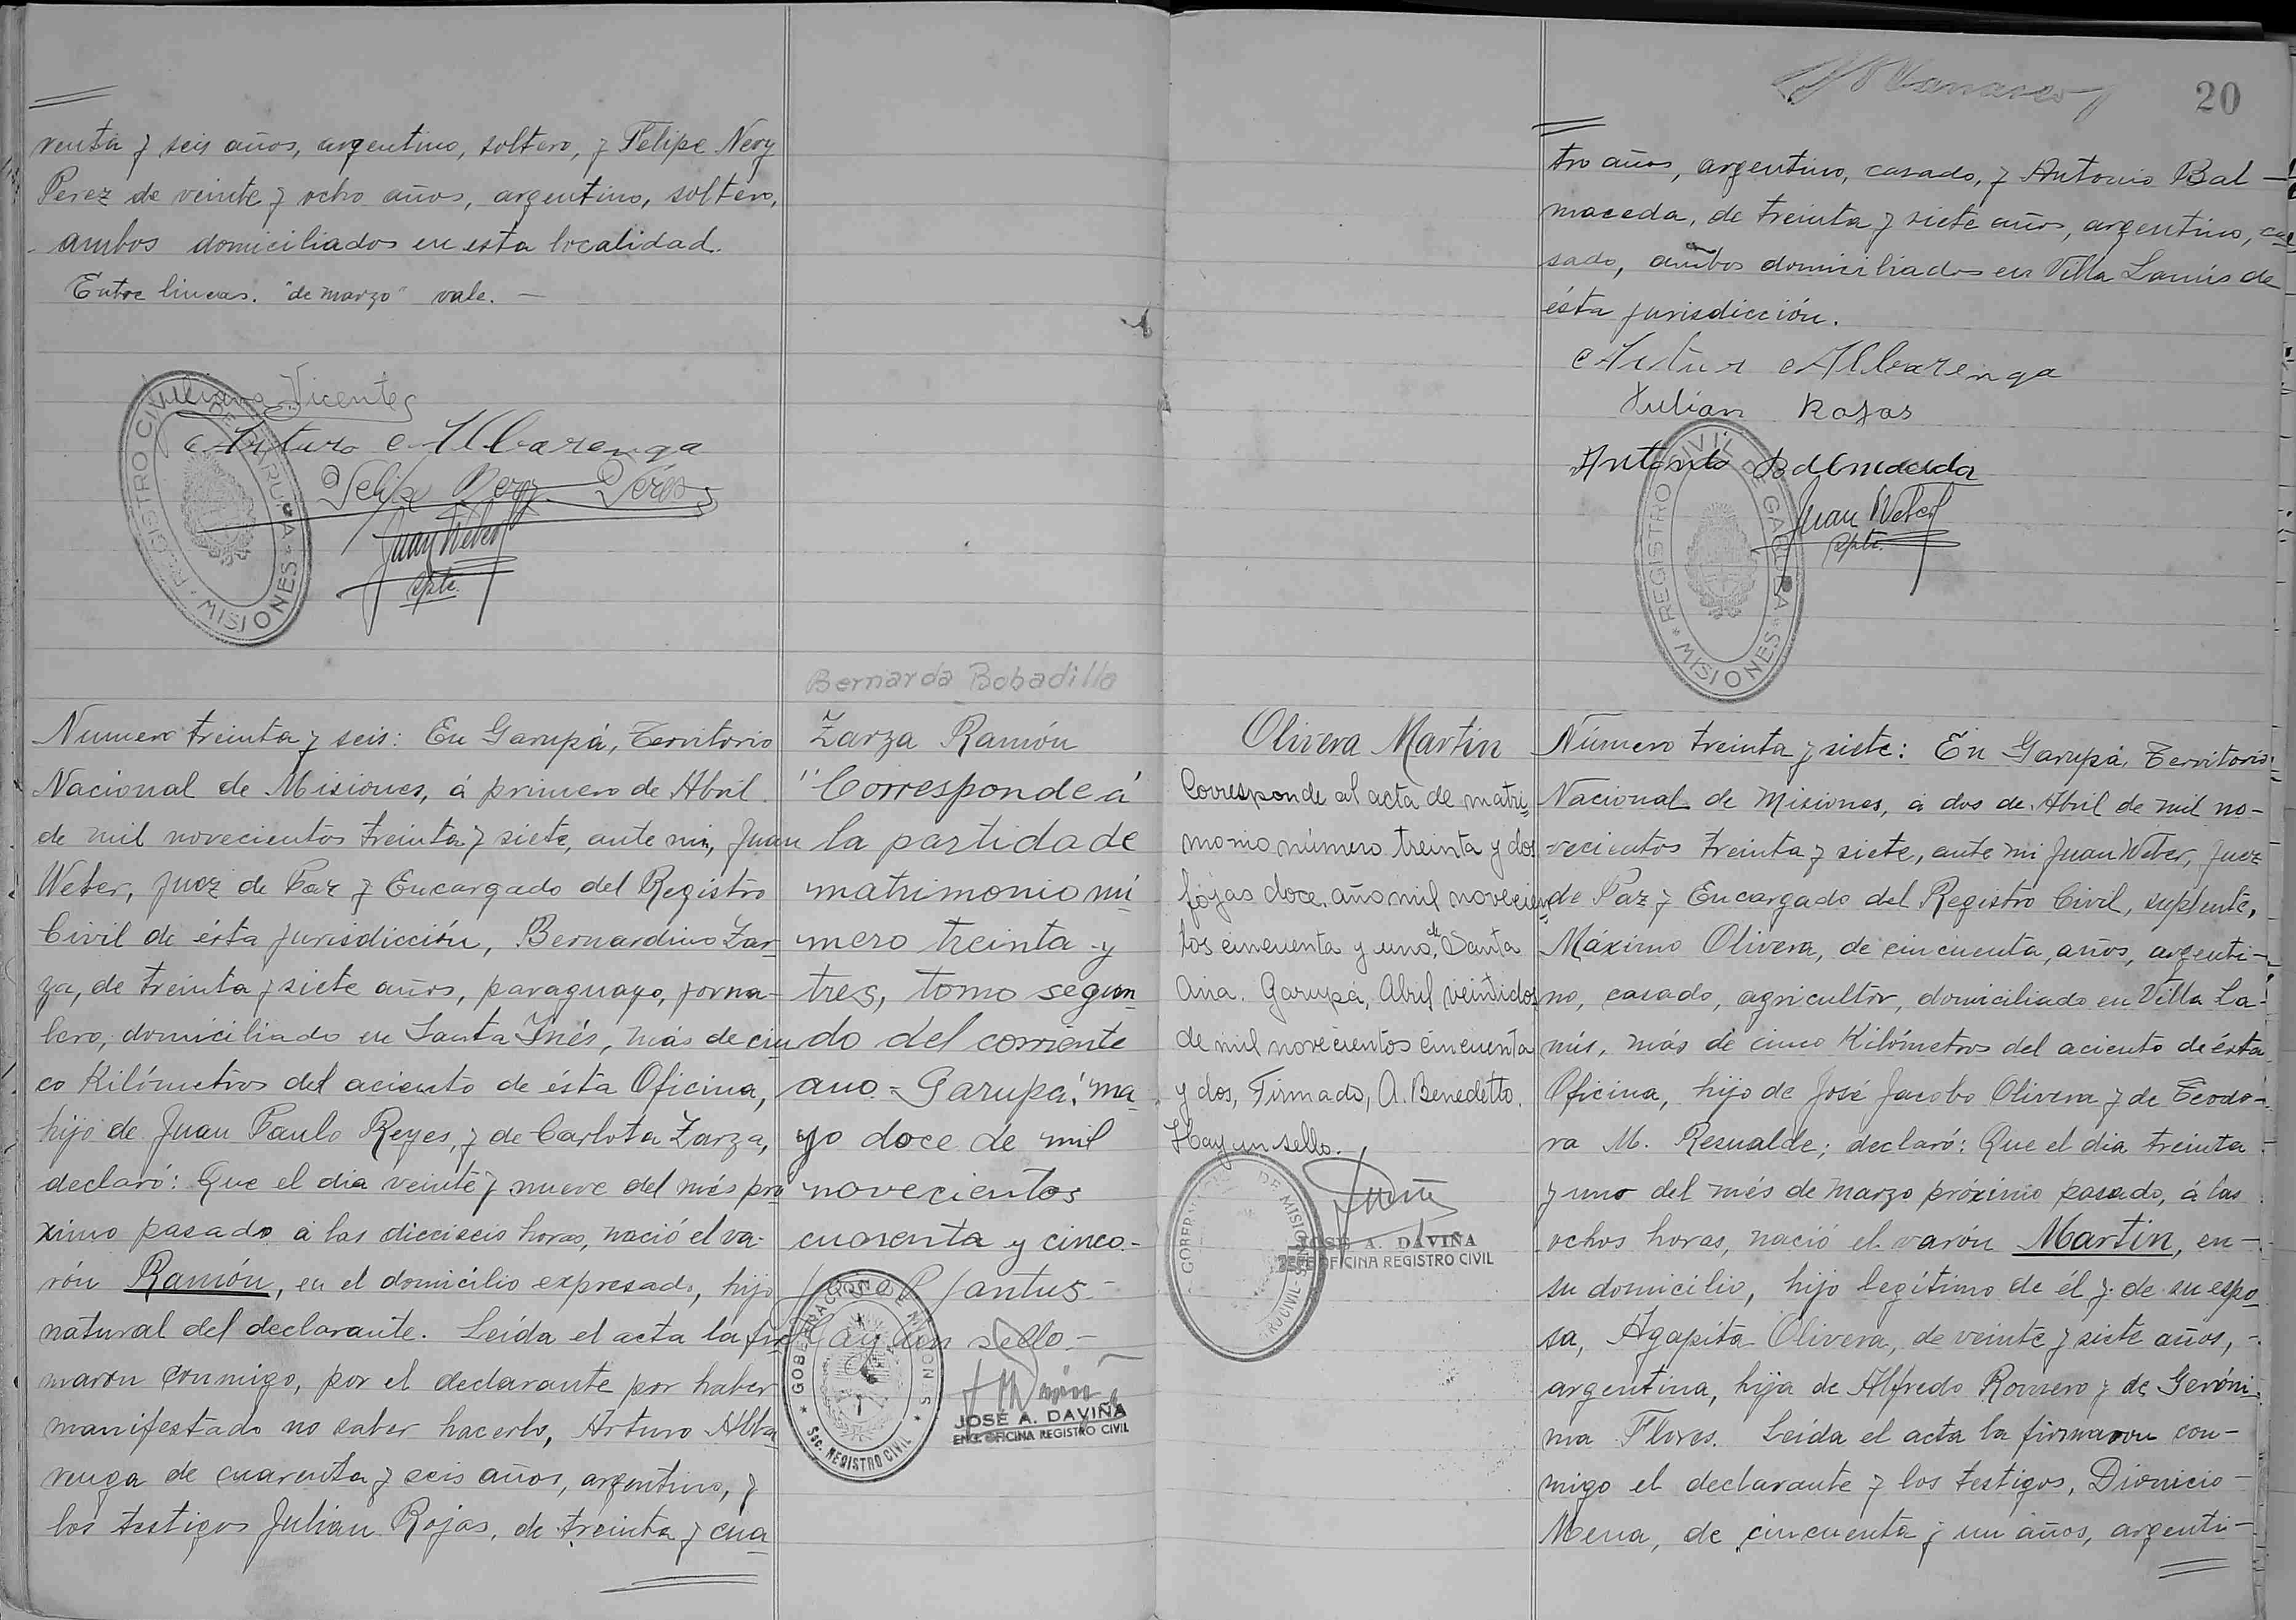 renta y seis años, argentino, soltero, y Felipe Nery
Perez de veinte y ocho años, argentino, soltero,
ambos domiciliados en esta localidad.
Entre lineas. "de marzo" vale. —
Vicentes
Arturo Albarenga
Felipe Nery Pérez
Juan Weber
Splte.
REGISTRO CIVIL DE GARUPA
MISIONES
Numero treinta y seis: En Garupá, Territorio
Nacional de Misiones, á primero de Abril
de mil novecientos treinta y siete, ante mi, Juan
Weber, Juez de Paz y Encargado del Registro
Civil de ésta jurisdicción, Bernardino Zar-
za, de treinta y siete años, paraguayo, jorna-
lero, domiciliado en Santa Inés, más de cin
co Kilómetros del aciento de ésta Oficina,
hijo de Juan Paulo Reyes, y de Carlota Zarza,
declaró: Que el dia veinte y nueve del més pró
ximo pasado á las dieciseis horas, nació el va-
rón Ramón, en el domicilio expresado, hijo
natural del declarante. Leída el acta la fir
maron conmigo, por el declarante por haber
manifestado no saber hacerlo, Arturo Alba
renga de cuarenta y seis años, argentino, y
los testigos Julian Rojas, de treinta y cua
Bernarda Bobadilla
Zarza Ramón
"Corresponde á
la partida de
matrimonio nú
mero treinta y
tres, tomo segun
do del corriente
ano. = Garupá, ma
yo doce de mil
novecientos
cuarenta y cinco.-
Santus-
Hay un sello.-
GOBERNACION DE MISIONES
Sec. REGISTRO CIVIL
JOSÉ A. DAVIÑA
ENC. OFICINA REGISTRO CIVIL
Olivera Martin
Corresponde al acta de matri-
monio número treinta y dos
fojas doce, año mil novecien
tos cincuenta y uno, de Santa
Ana. Garupá, Abril veintidos
de mil novecientos cincuenta
y dos, Firmado, A. Benedetto.
Hay un sello.
JOSÉ A. DAVIÑA
JEFE OFICINA REGISTRO CIVIL
20
tro años, argentino, casado, y Antonio Bal-
maceda, de treinta y siete años, argentino, ca
sado, ambos domiciliados en Villa Lanús de
ésta jurisdicción.
Artur Albarenga
Julian Rojas
Antonio Balmaceda
Juan Weber
Splte.
REGISTRO CIVIL DE GARUPA
MISIONES
Número treinta y siete: En Garupá, Territorio
Nacional de Misiones, á dos de Abril de mil no-
vecientos treinta y siete, ante mi Juan Weber, Juez
de Paz y Encargado del Registro Civil, suplente,
Máximo Olivera, de cincuenta, años, argenti-
no, casado, agricultor, domiciliado en Villa La-
nús, más de cinco Kilómetros del aciento de ésta
Oficina, hijo de José Jacobo Olivera y de Teodo-
ra M. Resualde; declaró: Que el dia treinta
y uno del més de Marzo próximo pasado, á las
ochos horas, nació el varón Martin, en-
su domicilio, hijo legítimo de él y de su espo
sa, Agapita Olivera, de veinte y siete años, -
argentina, hija de Alfredo Romero y de Geróni
ma Flores. Leída el acta la firmaron con-
migo el declarante y los testigos, Dionicio
Mena, de cincuenta y un años, argenti-